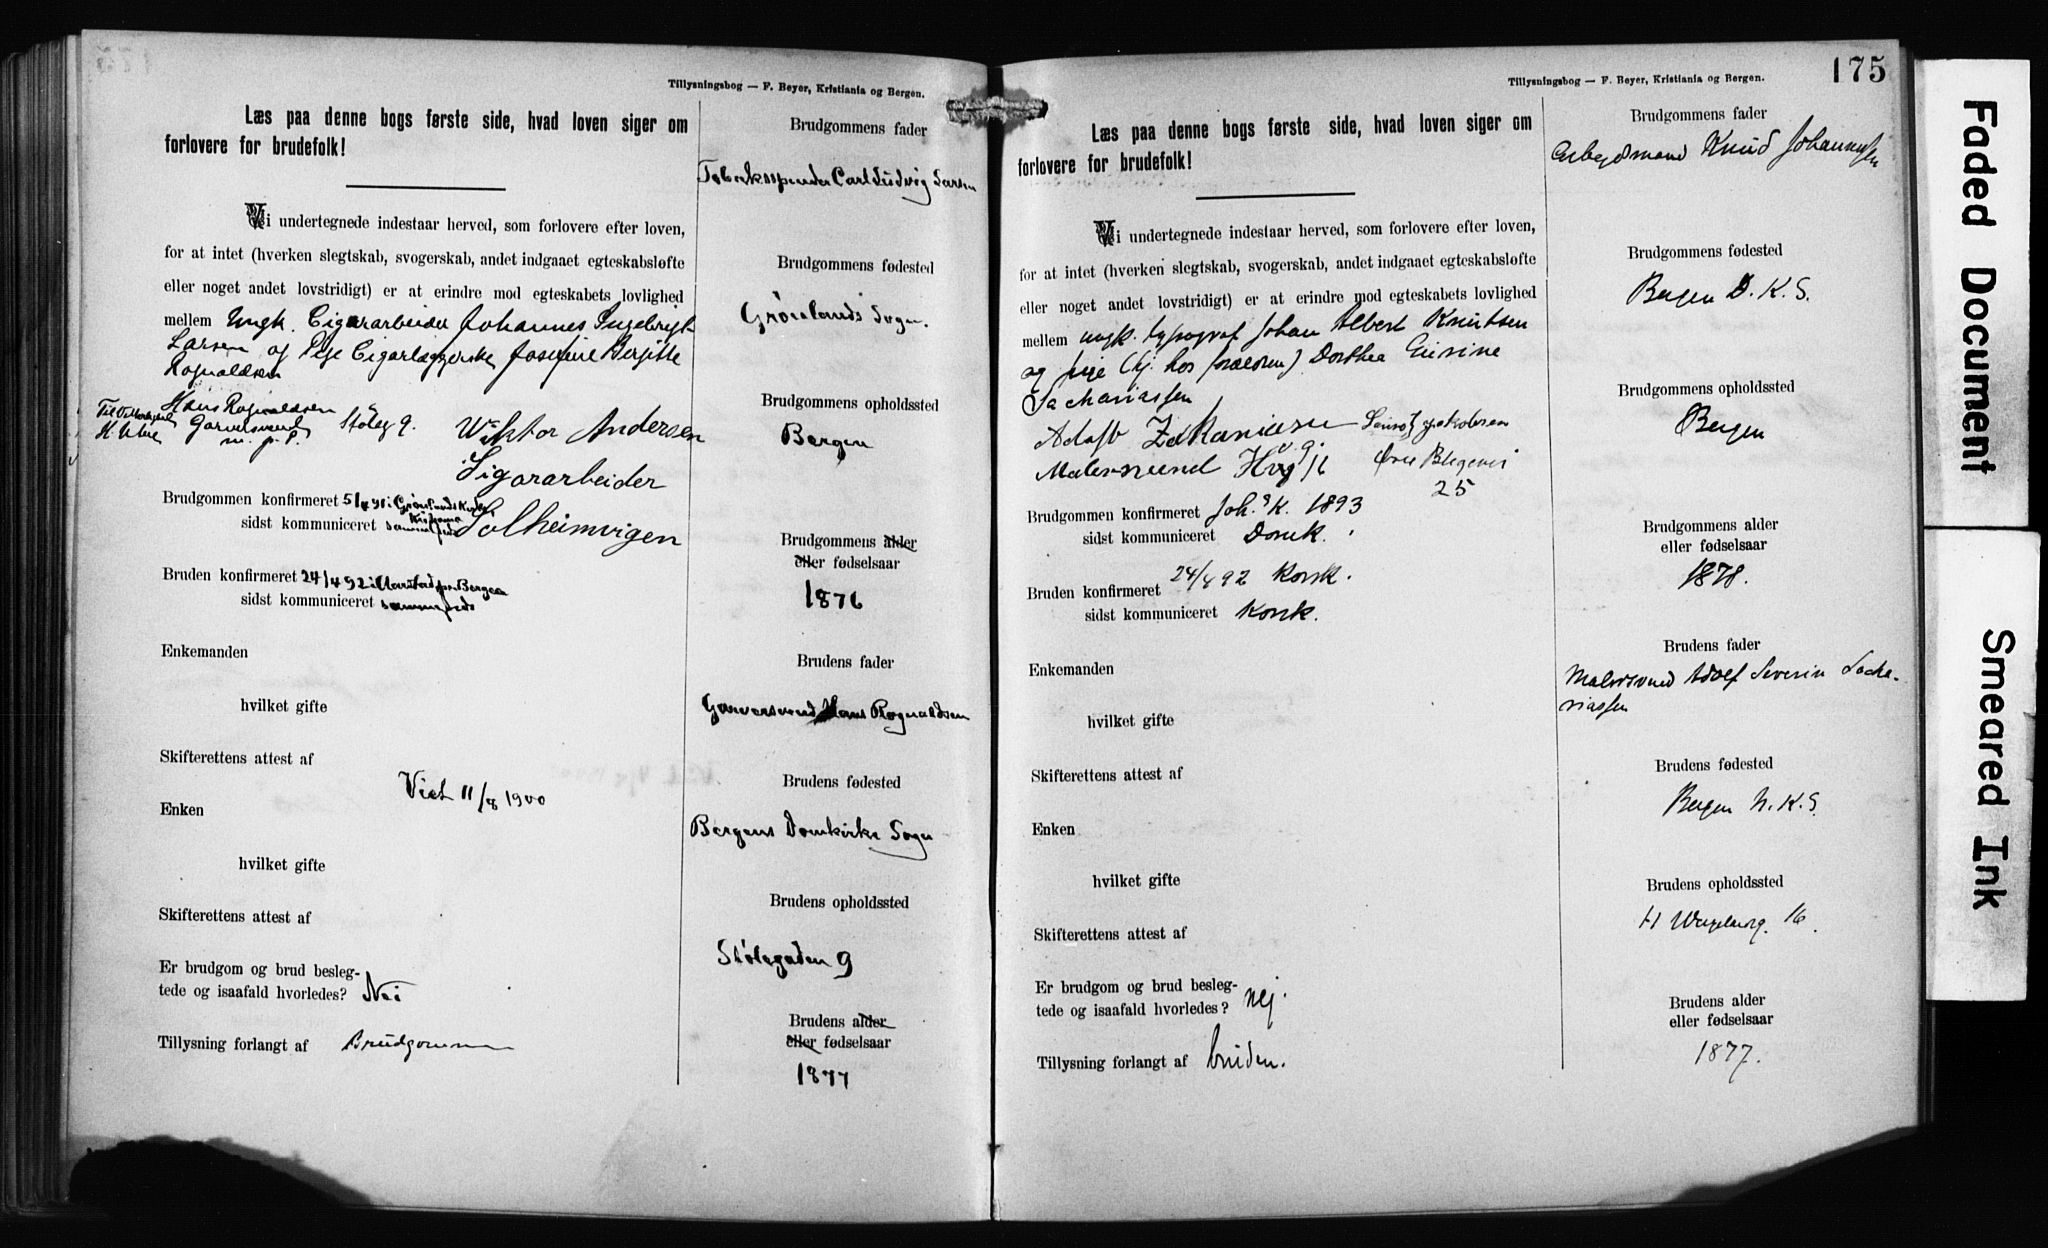 Tillysningsbog — F. Beyer, Kristiania og Bergen.
Læs paa denne bogs første side, hvad loven siger om
forlovere for brudefolk!
Vi undertegnede indestaar herved, som forlovere efter loven,
for at intet (hverken slegtskab, svogerskab, andet indgaaet egteskabsløfte
eller noget andet lovstridigt) er at erindre mod egteskabets lovlighed
mellem Ungk. Cigararbeider Johannes Ingebrigt
Larsen og Pige Cigarlæggerske Josefine Bergitte
Rognaldsen
Til Vitterlighed
Hans Rognaldsen
Garversvend
m. p. P.
Støleg 9.
Wiktor Andersen
Sigararbeider
Solheimvigen
Brudgommen konfirmeret 5/4 91 i Grønlands Kirke
Kristiania
sidst kommuniceret sammesteds
Bruden konfirmeret 24/4 92 i Bergen
sidst kommuniceret sammesteds
Enkemanden
hvilket gifte
Skifterettens attest af
Viet 11/8 1900
Enken
hvilket gifte
Skifterettens attest af
Er brudgom og brud besleg-
tede og isaafald hvorledes? Nei
Tillysning forlangt af Brudgommen
Brudgommens fader
Tobakksspinder Carl Ludvig Larsen
Brudgommens fødested
Grønlands Sogn.
Brudgommens opholdssted
Bergen
Brudgommens alder
eller fødselsaar
1876
Brudens fader
Garversvend Hans Rognaldsen
Brudens fødested
Bergens Domkirke Sogn
Brudens opholdssted
Stølegaden 9
Brudens alder
eller fødselsaar
1877
Tillysningsbog — F. Beyer, Kristiania og Bergen.
175
Læs paa denne bogs første side, hvad loven siger om
forlovere for brudefolk!
Vi undertegnede indestaar herved, som forlovere efter loven,
for at intet (hverken slegtskab, svogerskab, andet indgaaet egteskabsløfte
eller noget andet lovstridigt) er at erindre mod egteskabets lovlighed
mellem ungk. typograf Johan Albert Knutsen
og pige (hj. hos forældren) Dorthea
Sachariassen
Adolf Zakariasen
Malersvend
Jakobsen
Øvre Blegevei
25
Brudgommen konfirmeret Joh. K. 1893
sidst kommuniceret Domk.
Bruden konfirmeret 24/4 92 Korsk.
sidst kommuniceret Korsk.
Enkemanden
hvilket gifte
Skifterettens attest af
Enken
hvilket gifte
Skifterettens attest af
Er brudgom og brud besleg-
tede og isaafald hvorledes? nej.
Tillysning forlangt af bruden.
Brudgommens fader
Arbejdsmand Knud Johannessen
Brudgommens fødested
Bergen D. K. S.
Brudgommens opholdssted
Bergen
Brudgommens alder
eller fødselsaar
1878.
Brudens fader
Malersvend Adolf Severin Sacha-
riassen
Brudens fødested
Bergen N. K. S.
Brudens opholdssted
16.
Brudens alder
eller fødselsaar
1877.
Faded Document
Smeared Ink